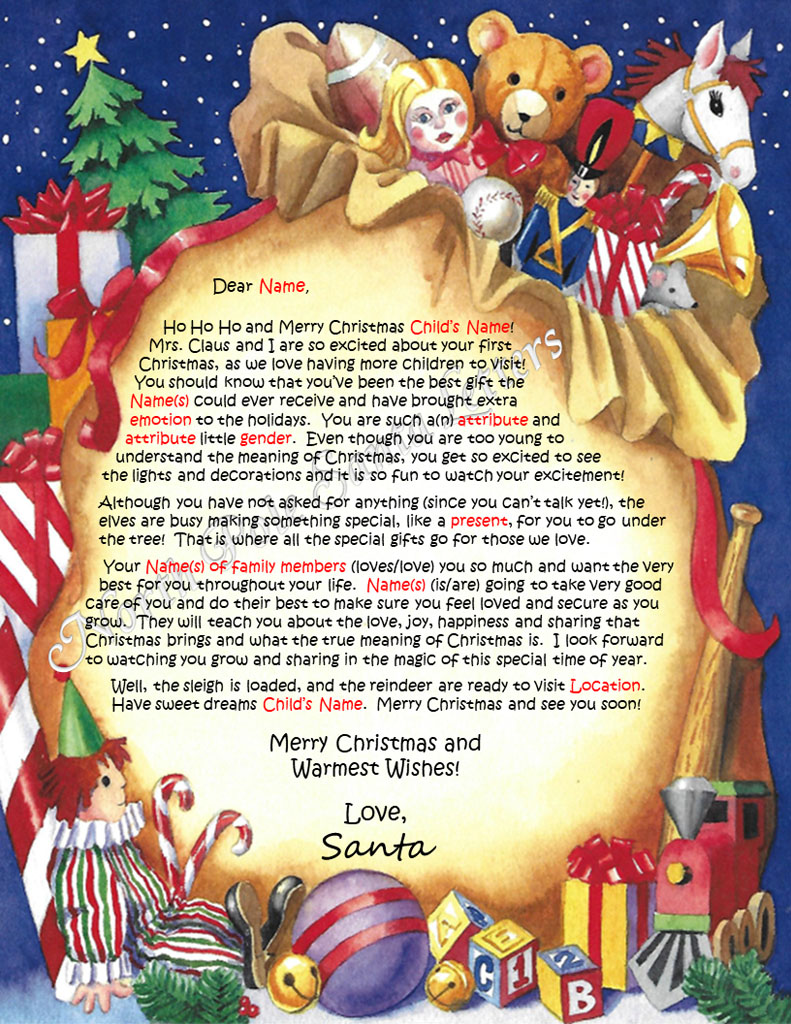 Dear Name,
Ho Ho Ho and Merry Christmas Child's Name!
Mrs. Claus and I are so excited about your first
Christmas, as we love having more children to visit!
You should know that you've been the best gift the
Name(s) could ever receive and have brought extra
emotion to the holidays. You are such a(n) attribute and
attribute little gender. Even though you are too young to
understand the meaning of Christmas, you get so excited to see
the lights and decorations and it is so fun to watch your excitement!
Although you have not asked for anything (since you can't talk yet!), the
elves are busy making something special, like a present, for you to go under
the tree! That is where all the special gifts go for those we love.
Your Name(s) of family members (loves/love) you so much and want the very
best for you throughout your life. Name(s) (is/are) going to take very good
care of you and do their best to make sure you feel loved and secure as you
grow. They will teach you about the love, joy, happiness and sharing that
Christmas brings and what the true meaning of Christmas is. I look forward
to watching you grow and sharing in the magic of this special time of year.
Well, the sleigh is loaded, and the reindeer are ready to visit Location.
Have sweet dreams Child's Name. Merry Christmas and see you soon!
Merry Christmas and
Warmest Wishes!
Love,
Santa
North Pole Santa Letters
A C E
C 1 2
B